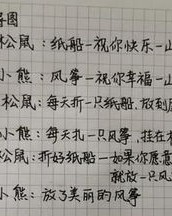 导图
松鼠：纸船—祝你快乐—山
小熊：风筝—祝你幸福—山
松鼠：每天折一只纸船，放到
小熊：每天扎一只风筝 挂在
松鼠：折好纸船—如果你愿意
就放一只风
小熊：放了美丽的风筝